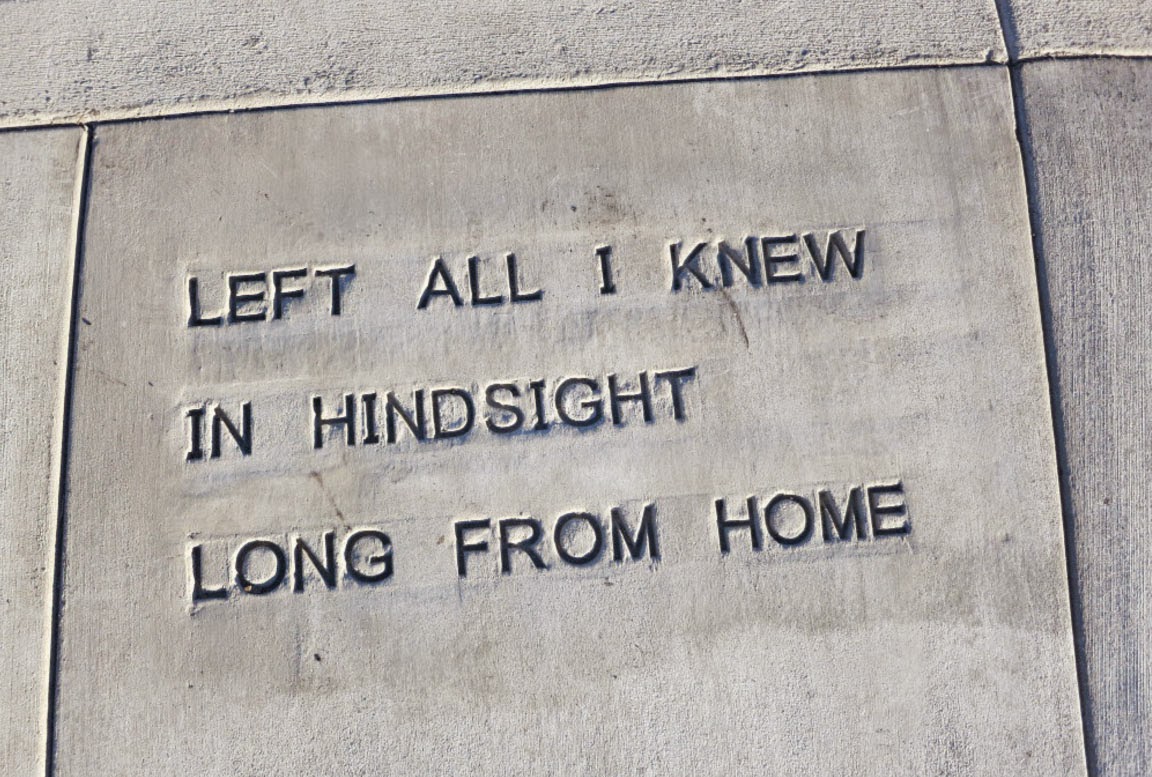 LEFT ALL I KNEW
IN HINDSIGHT
LONG FROM HOME